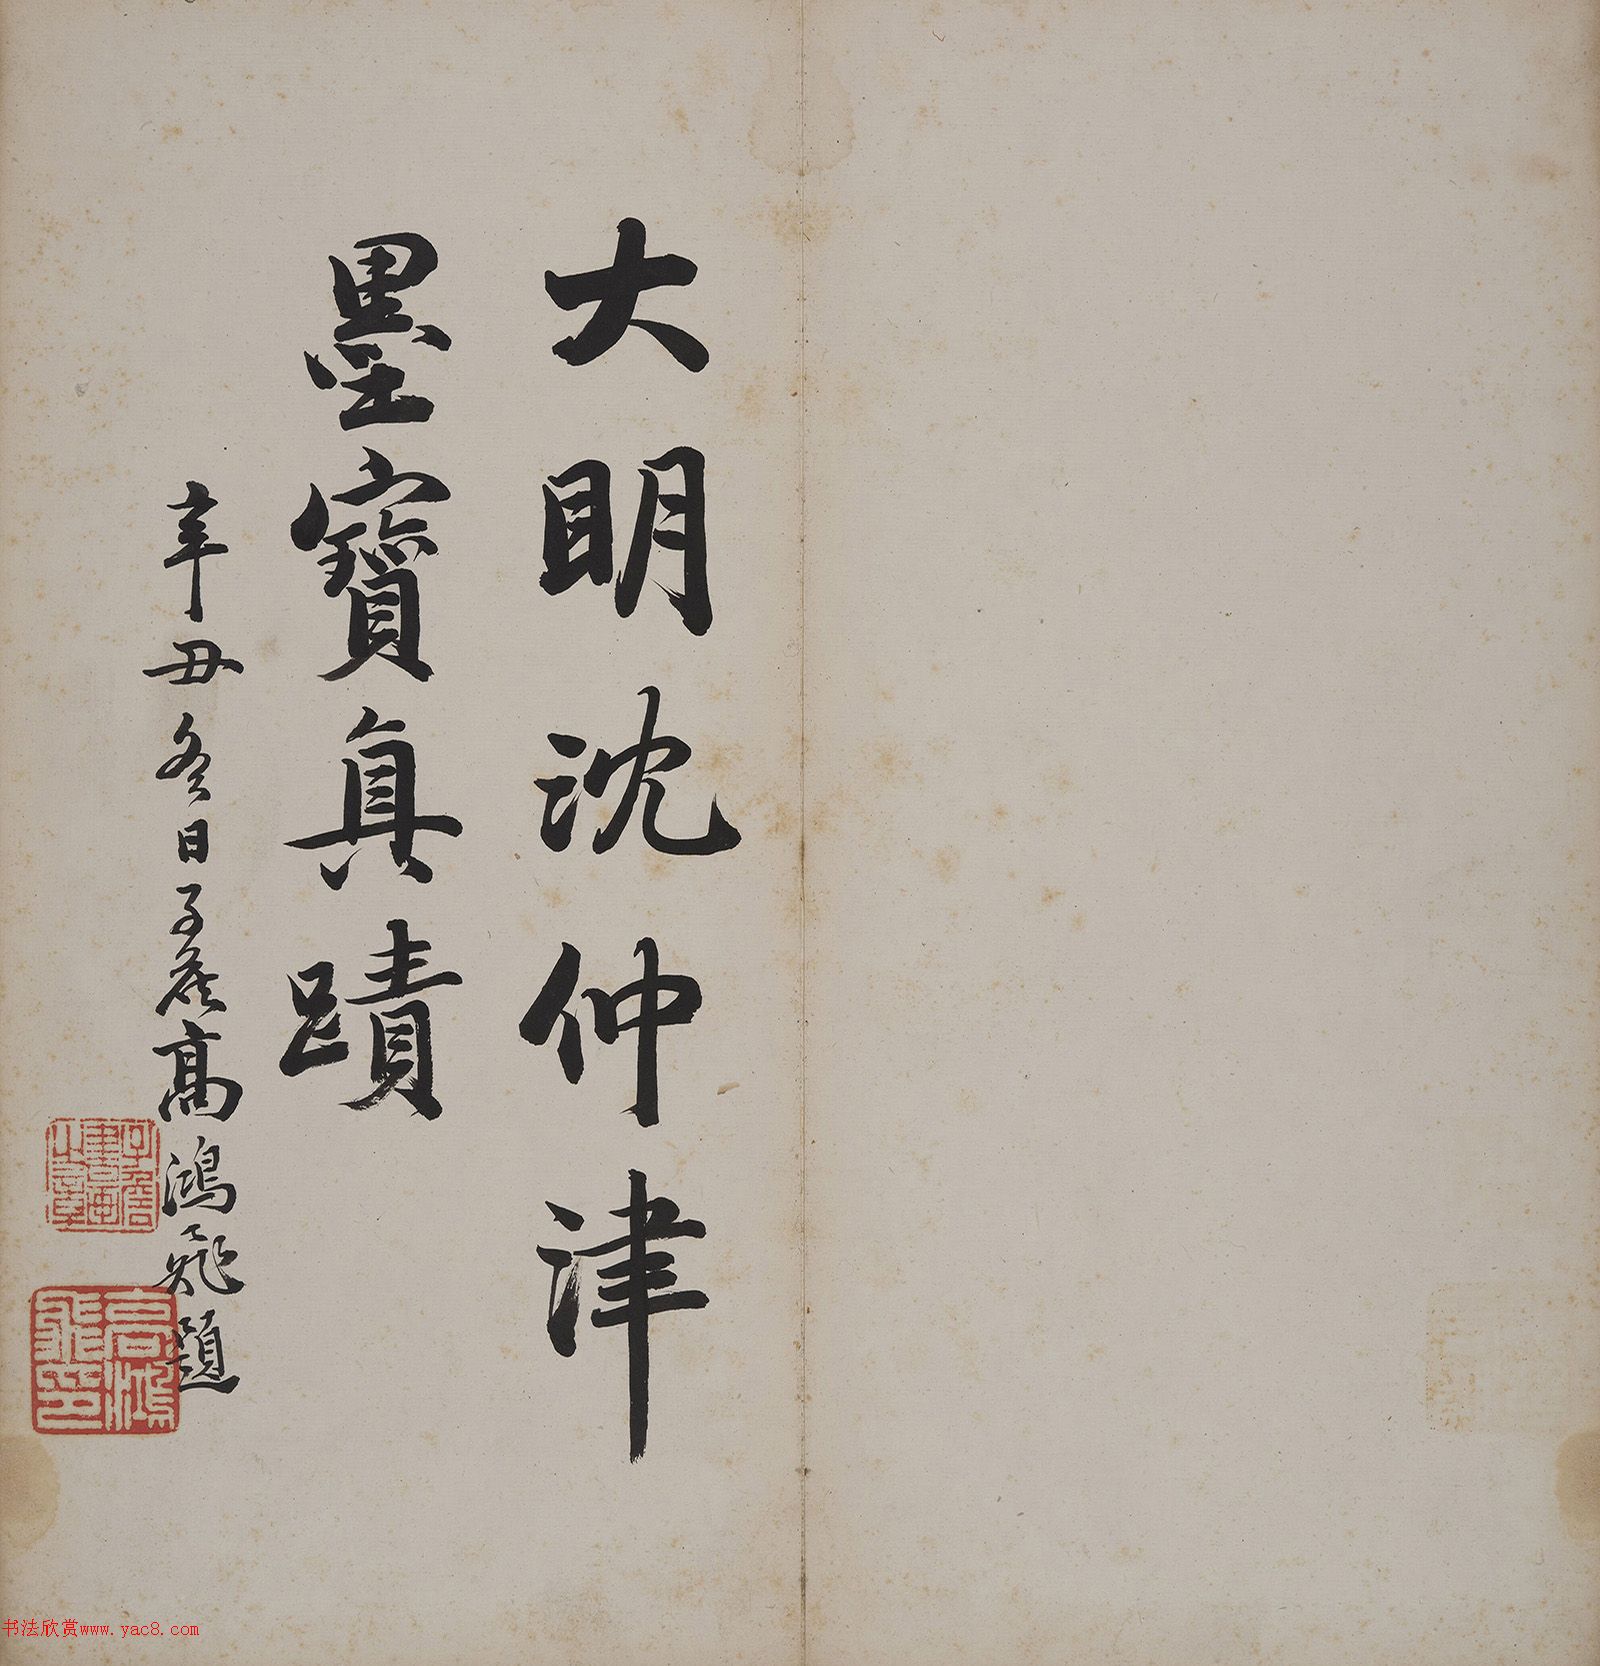 大明沈仲津
墨寶真蹟
辛丑冬日子彥高鴻飛題
高鴻飛印
书法欣赏www.yac8.com